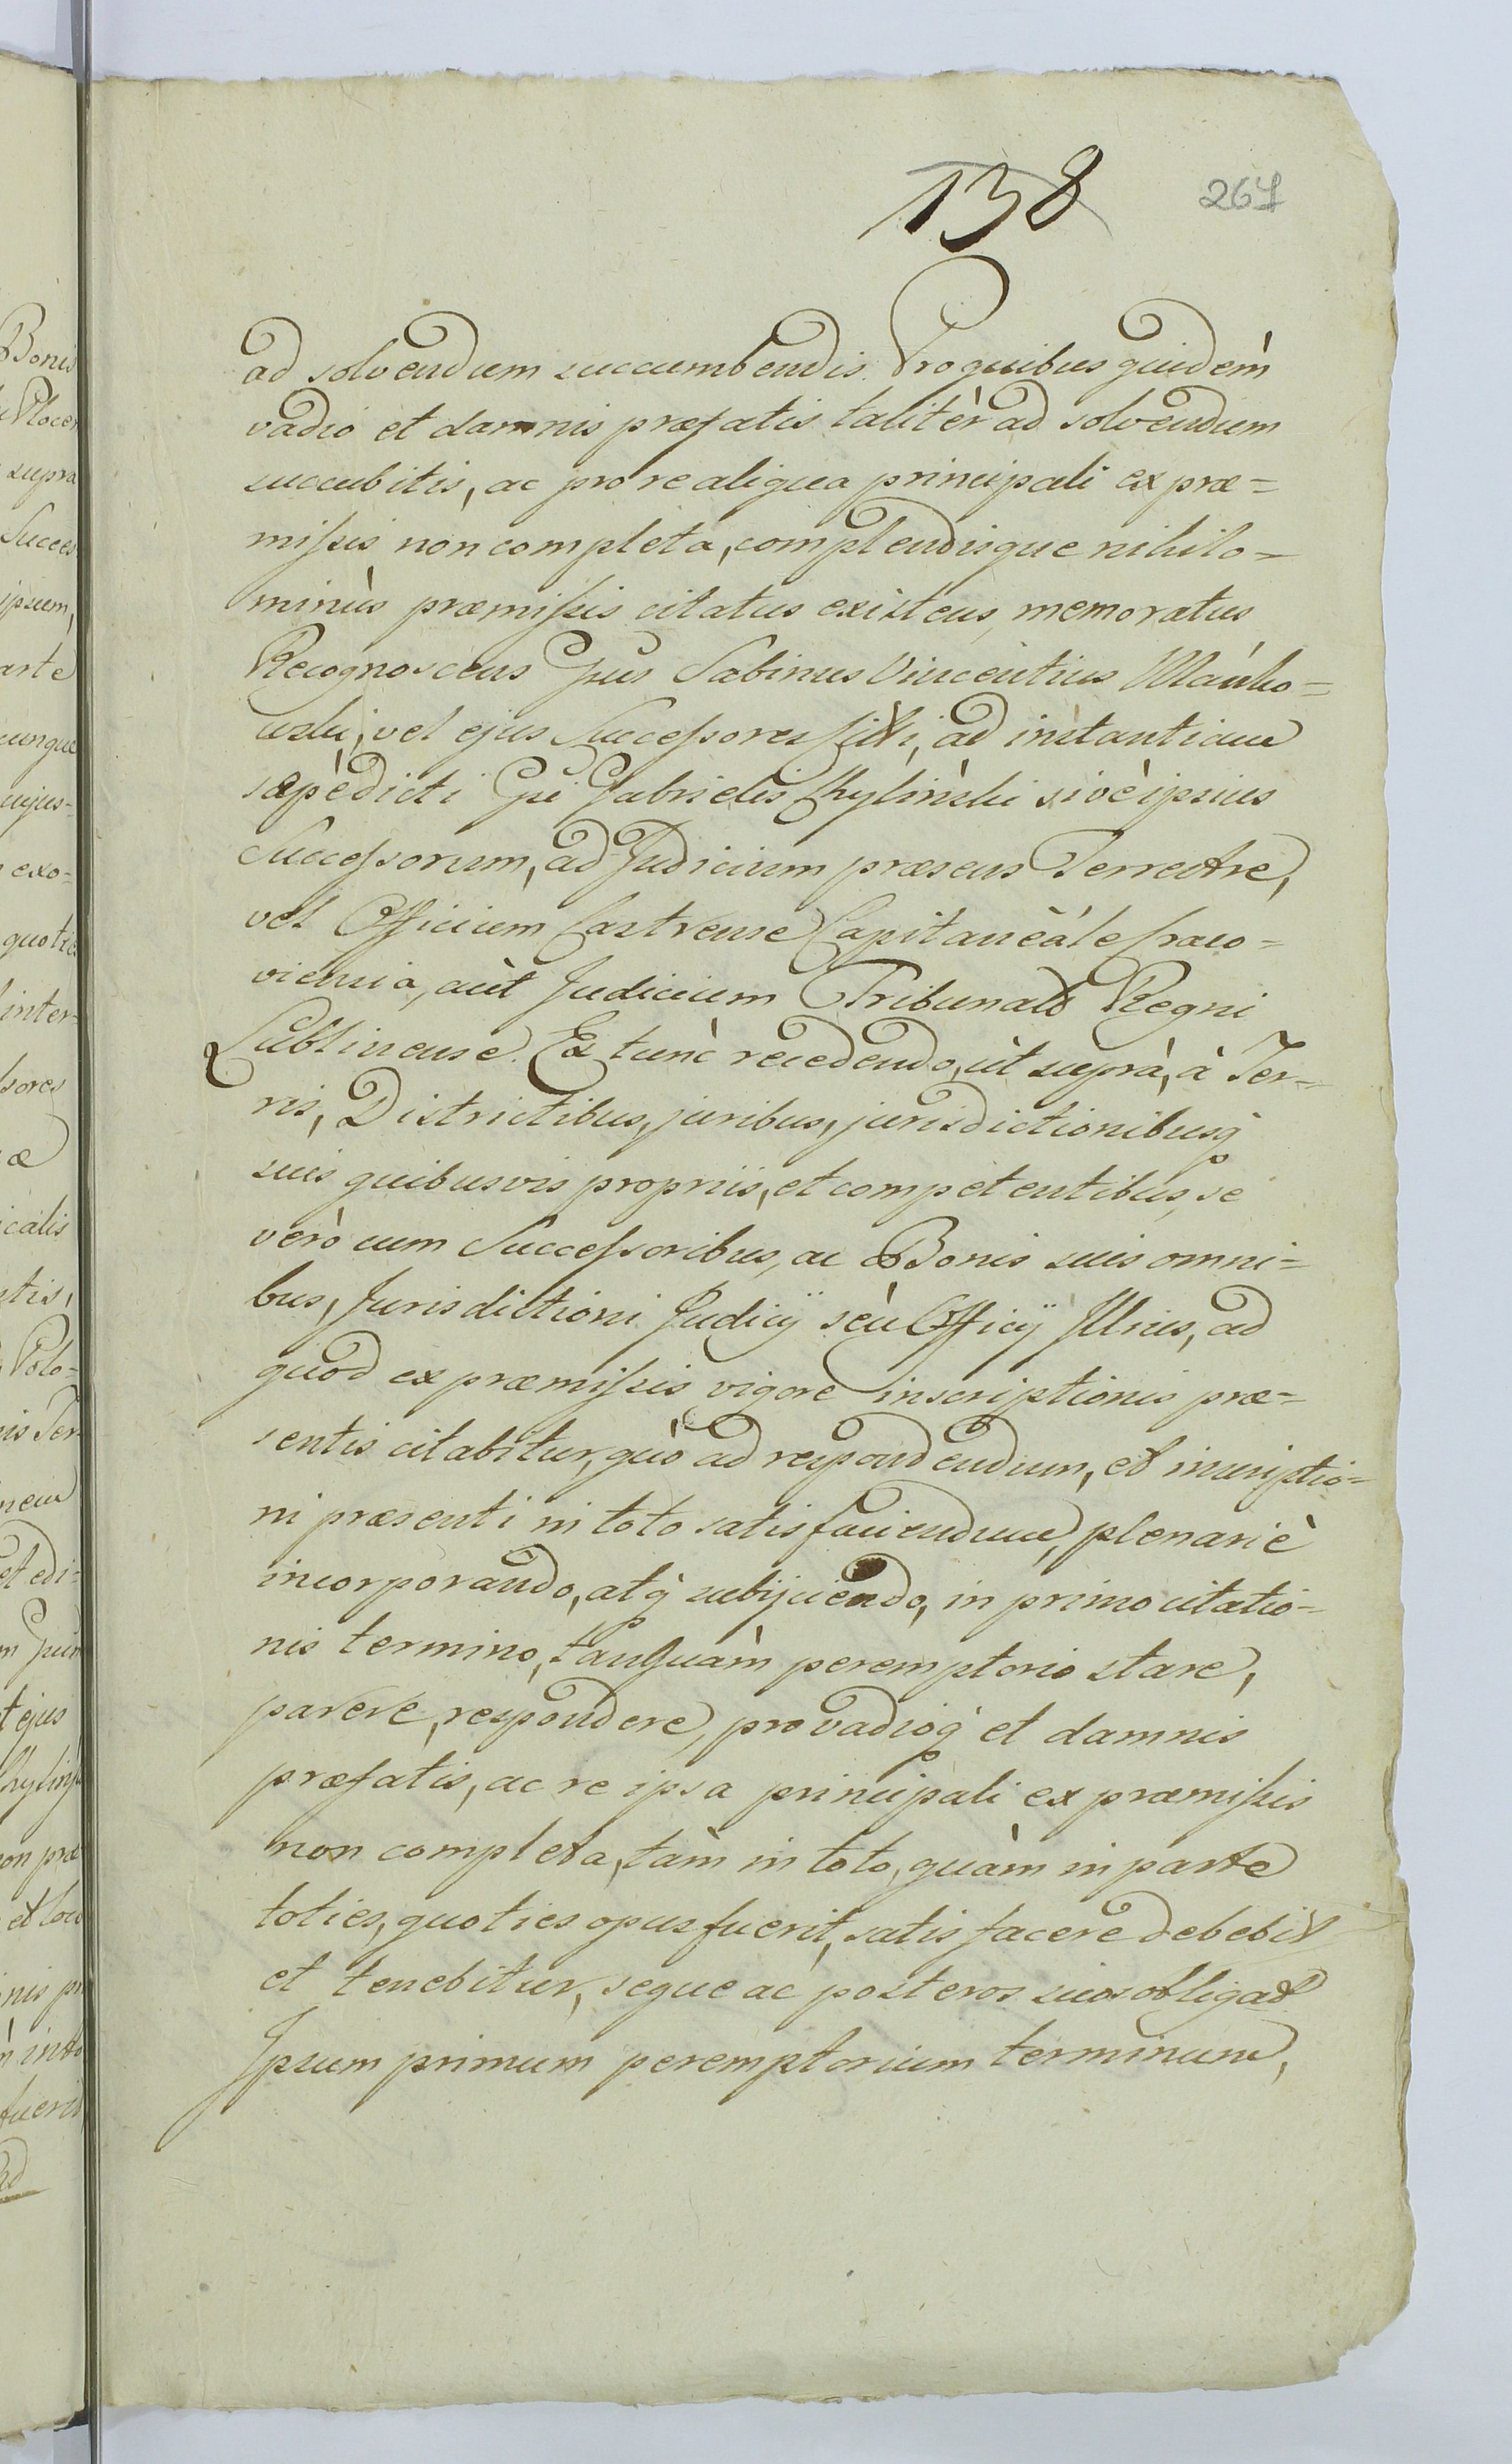 138 267
ad solvendum succumbendis. Pro quibus quidèm
vadio et damnis præfatis talitèr ad solvendum
succubitis, ac pro re aliqua principali ex præ=
missis non completa, complendisque nihilo=
minùs præmissis citatus existens, memoratus
Recognoscens Gsus Sabinus Vincentius Mańko=
wski, vel ejus Successores citati, ad instantiam
sæpèdicti Gsi Gabrielis Chyliński sivè ipsius
Successorum, ad Judicium præsens Terrestre,
vel Officium Castrense Capitaneále Craco=
viensia, aùt Judicium Tribunals Regni
Lublinense. Ex tunc recedendo, ùt suprà, à Ter=
ris, Districtibus, juribus, jurisdictionibusq̀
suis quibusvis propriis, et competentibus, se
verò cum Successoribus, ac Bonis suis omni=
bus, Jurisdictioni Judicÿ sèu Officÿ Illius, ad
quod ex præmissis vigore inscriptionis præ=
sentis citabitur, quò ad respondendum, et inscriptio=
ni præsenti in toto satisfaciendum, plenariè
incorporando, atq̀ subijciendo, in primo citatio=
nis termino, tanquàm peremptorio stare,
parere, respondere, pro vadioq̀ et damnis
præfatis, ac re ipsa principali ex præmissis
non completa, tàm in toto, quàm in parte
toties, quoties opus fuerit, satisfacere debebit
et tenebitur, seque ac posteros suos obligat
Ipsum primum peremptorium terminum,